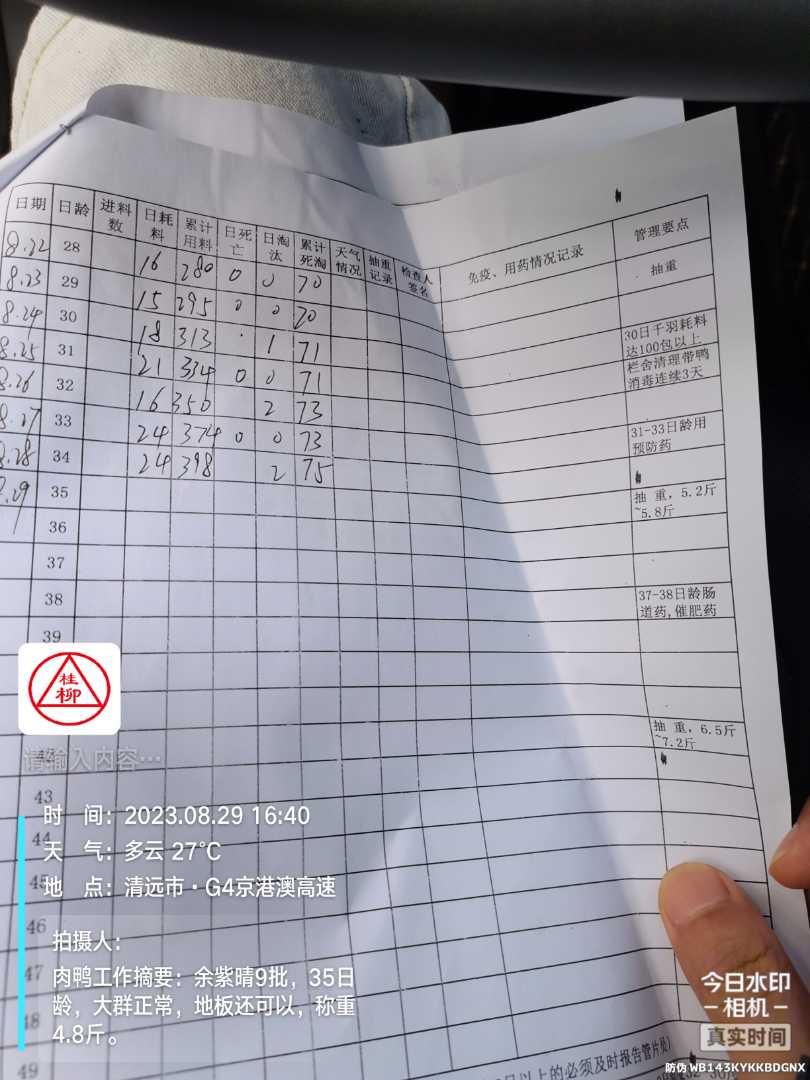 日期 日龄 进料数 日耗料 累计用料 日死亡 日淘汰 累计死淘 天气情况 抽重记录 检查人签名 免疫、用药情况记录 管理要点
8.22 28 16 280 0 0 70 抽重
8.23 29 15 295 0 0 70
8.24 30 18 313 · 1 71 30日千羽耗料达100包以上
8.25 31 21 334 0 0 71 栏舍清理带鸭消毒连续3天
8.26 32 16 350 2 73
8.27 33 24 374 0 0 73 31-33日龄用预防药
8.28 34 24 398 2 75
8.29 35 抽 重, 5.2斤~5.8斤
36
37
38 37-38日龄肠道药,催肥药
39
抽 重, 6.5斤~7.2斤
43
44
45
46
47
48
49
以上的必须及时报告管片员)
桂
柳
请输入内容…
时 间: 2023.08.29 16:40
天 气: 多云 27℃
地 点: 清远市·G4京港澳高速
拍摄人:
肉鸭工作摘要: 余紫晴9批, 35日
龄, 大群正常, 地板还可以, 称重
4.8斤。
今日水印
相机
真实时间
防伪 WB143KYKKBDGNX